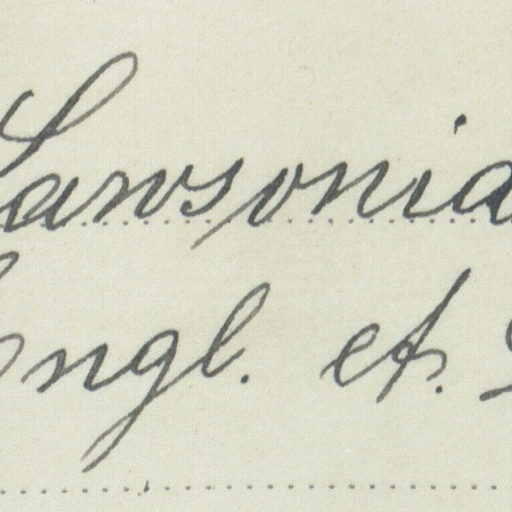 Lawsonia
Engl. et.